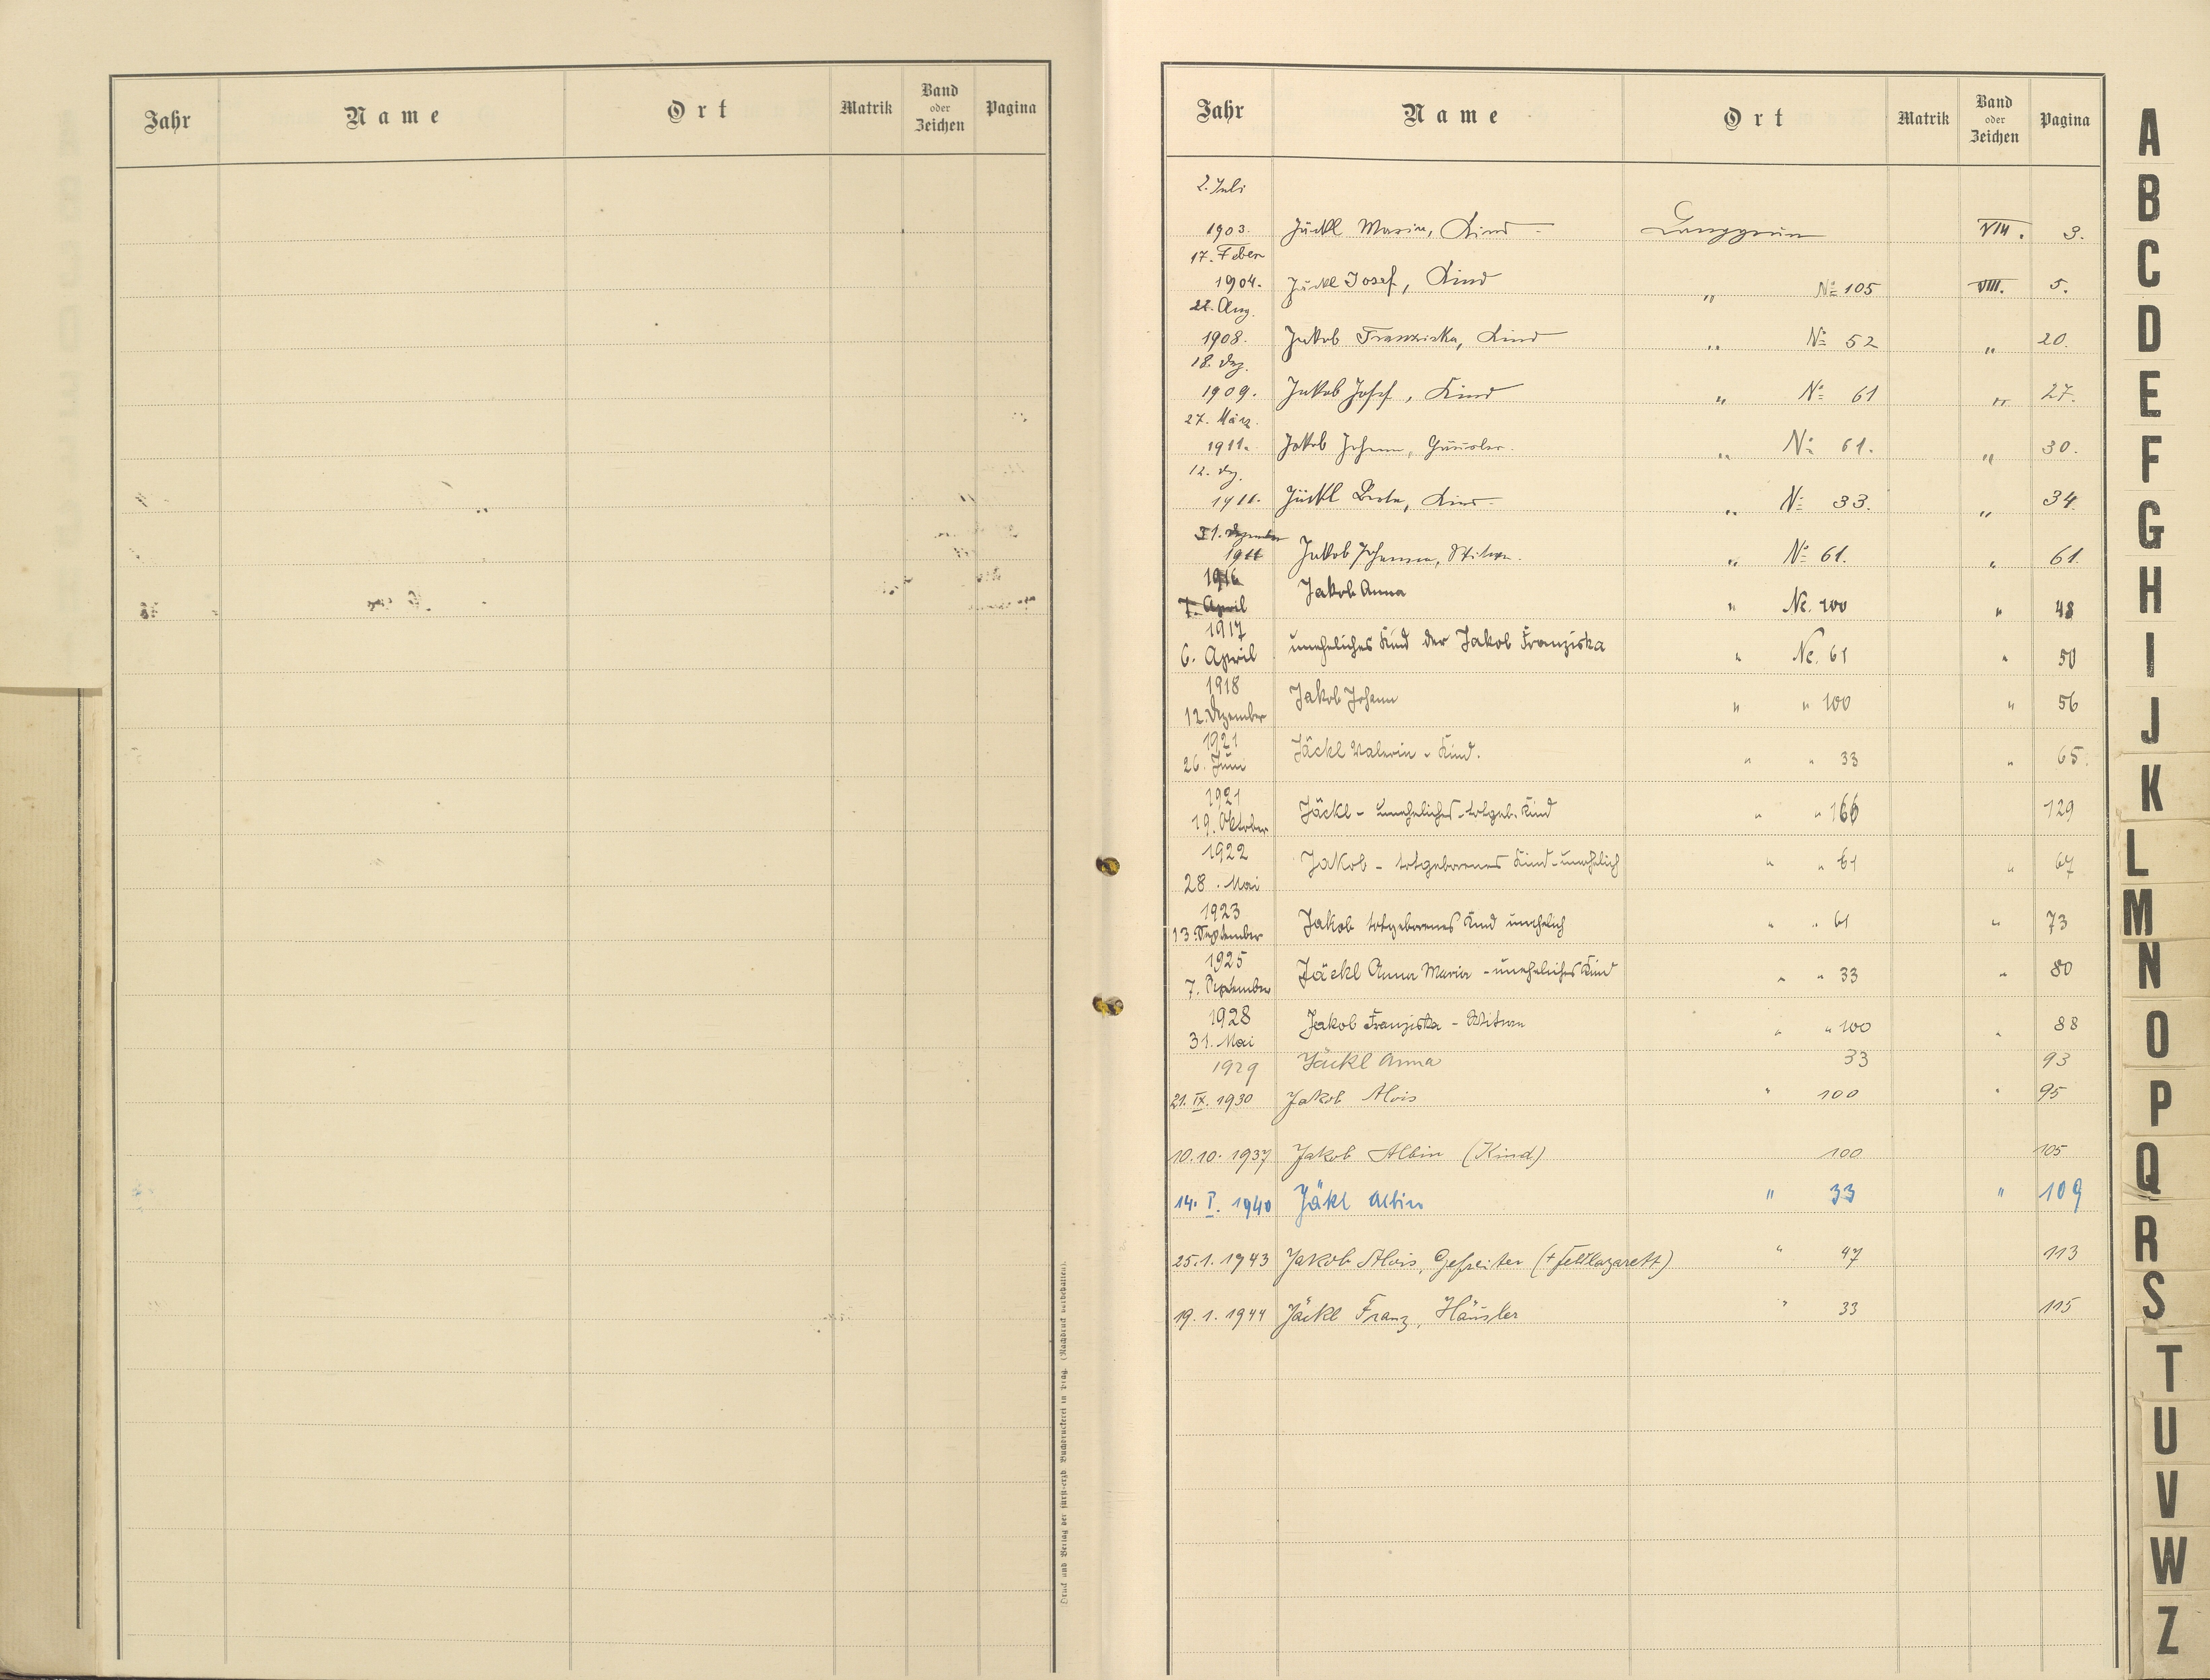 Jahr Name Ort Matrik Band oder Zeichen Pagina
(Druck und Verlag der fürst-erzb. Buchdruckerei in Prag. (Nachdruck vorbehalten).
Jahr Name Ort Matrik Band oder Zeichen Pagina
2. Juli
1903. Jäckl Maria, Kind - Langgrün VIII. 3.
17. Feber
1904. Jäckl Josef, Kind " No 105 VIII. 5.
22. Aug.
1908. Jakob Franziska, Kind " No 52 " 20.
18. Dez.
1909. Jakob Josef, Kind " No 61 " 27.
27. März
1911. Jakob Johann, Häusler. " No 61. " 30.
12. Dz.
1911. Jäckl Berta, Kind. " No 33. " 34.
31. Dezember
1911 Jakob Johanna, Witwe. " No 61. " 61.
1916 Jakob Anna
7. April " Nr. 100 " 48
1917 uneheliches Kind der Jakob Franziska
6. April " Nr. 61 " 50
1918 Jakob Johann
12. Dezember " " 100 " 56
1921 Jäckl - Kind.
26. Juni " " 33 " 65.
1921 Jäckl - uneheliches - totgeb. Kind
19. Oktober " " 166 129
1922 Jakob - totgeborenes Kind - unehelich " " 61 " 67
28. Mai
1923 Jakob totgeborenes Kind unehelich " " 61 " 73
13. September
1925 Jäckl Anna Maria - uneheliches Kind " " 33 " 80
7. September
1928 Jakob Franziska - Witwe " " 100 " 88
31. Mai
1929 Jäckl Anna 33 93
21. IX. 1930 Jakob Alois " 100 " 95
10.10. 1937 Jakob Albin (Kind) 100 105
14. I. 1940 Jäkl Albin " 33 " 109
25.1.1943 Jakob Alois, Gefreiter (+ Feldlazarett) " 47 113
19.1.1944 Jäckl Franz, Häusler " 33 115
A
B
C
D
E
F
G
H
I
J
K
L
M
N
O
P
Q
R
S
T
U
V
W
Z